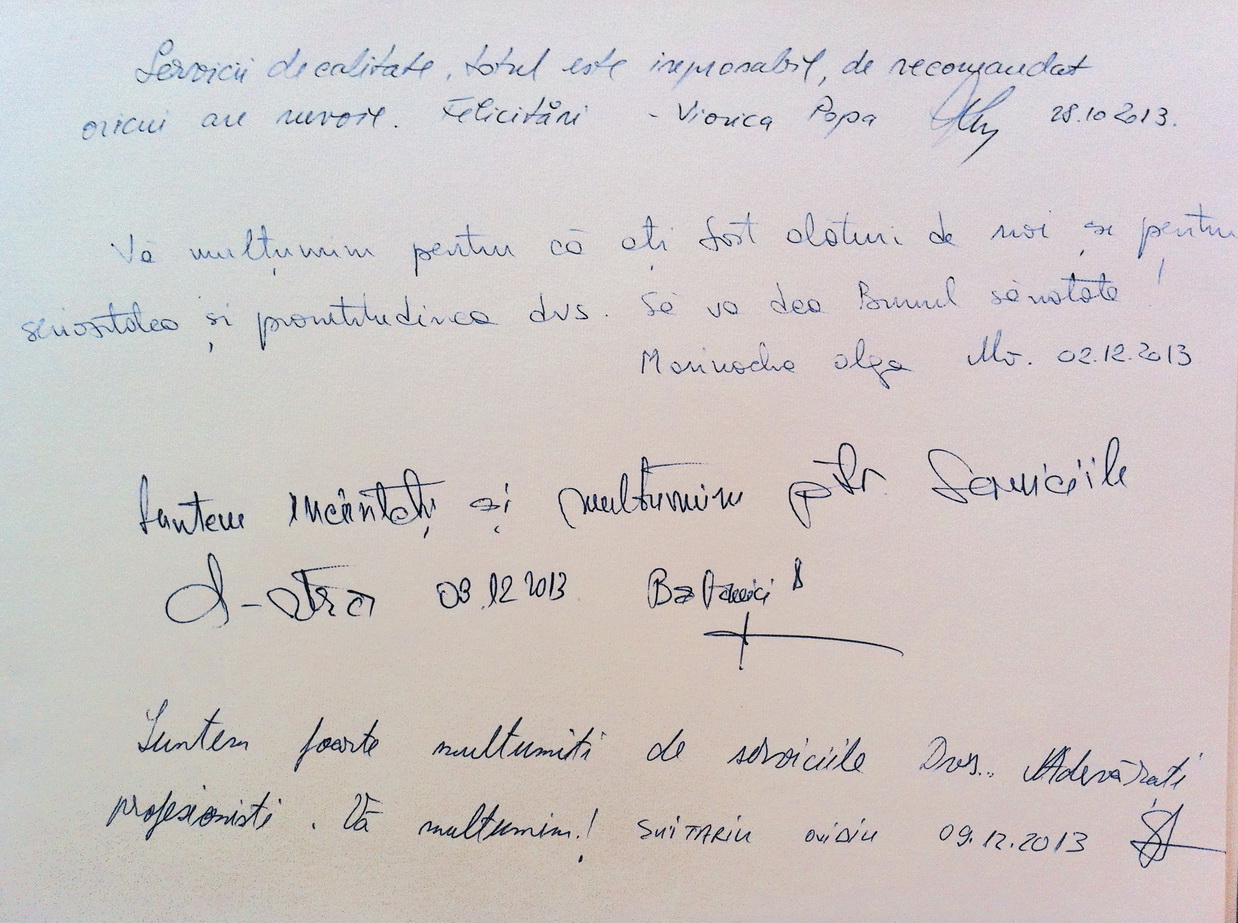 Servicii de calitate, totul este ireprosabil, de recomandat
oricui are nevoie. Felicitări - Viorica Popa 28.10 2013.
Vă mulțumim pentru că ați fost alături de noi și pentru
seriozitatea și promtitudinea dvs. Să va dea Bunul sănătate!
Marinache Olga 02.12.2013
Suntem încântați și multumim ptr. Serviciile
d-stră 03.12 2013
Suntem foarte multumiti de serviciile Dvs.. Adevărați
profesionisti. Vă multumim! SUITARIU OVIDIU 09.12.2013